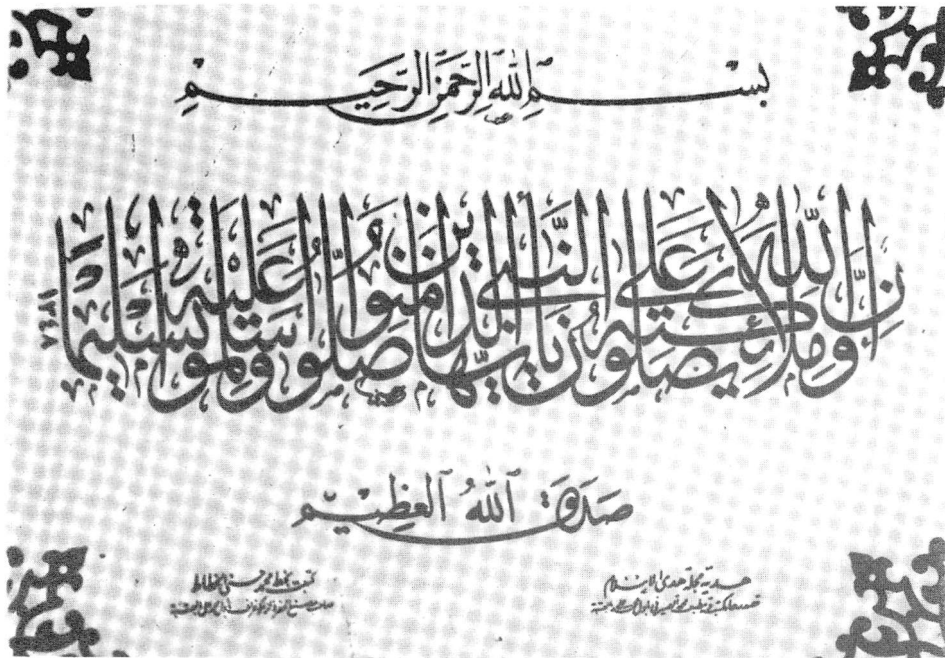 بسم الله الرحمن الرحيم
إن الله وملائكته يصلون على النبي يا أيها الذين آمنوا صلوا عليه وسلموا تسليما
صدق الله العظيم
هدية مجلة هدى الإسلام
كتبت بخط محمد حسني الخطاط